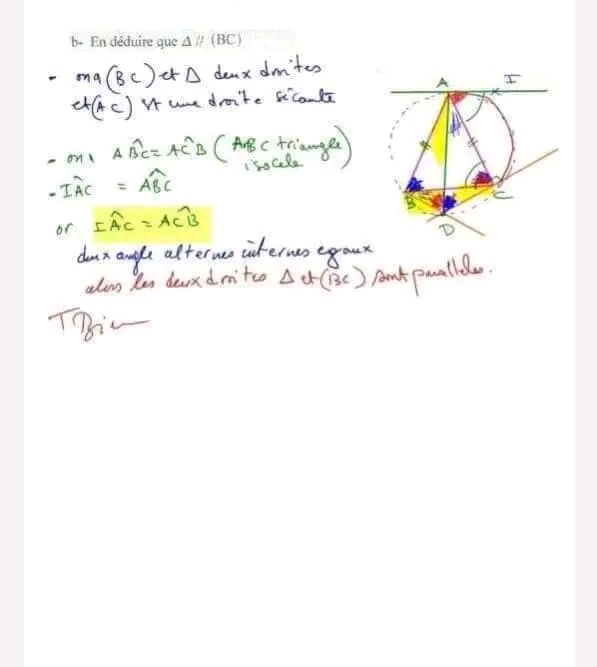 b- En déduire que Δ // (BC)
- on a (BC) et Δ deux droites
et (AC) st une droite sécante
- on a AB̂C = AĈB (ABC triangle
isocele)
- IÂC = AB̂C
or IÂC = AĈB
deux angle alternes internes egaux
alors les deux droites Δ et (BC) sont paralleles.
T Bien
A
I
B
C
D